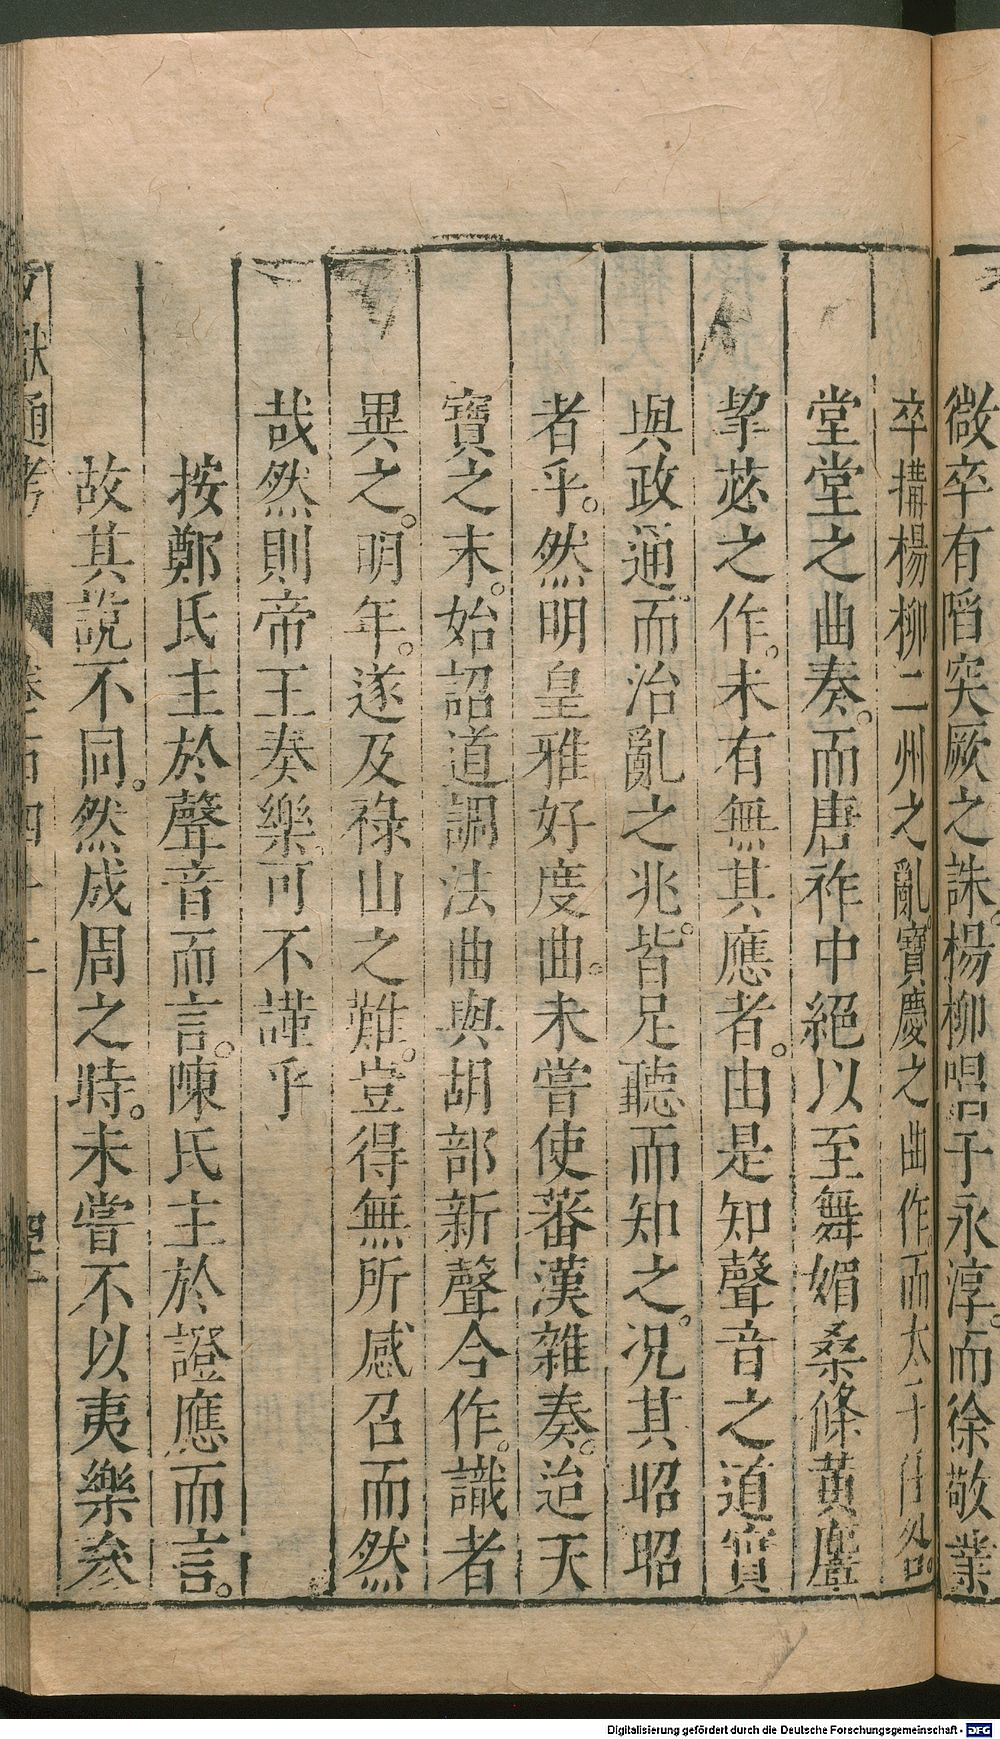 微卒有䧟突厥之誅。楊柳唱于永淳。而徐敬業
卒搆楊柳二州之亂。寶慶之曲作。而太子任咎。
堂堂之曲奏。而唐祚中絕以至舞媚桑條黃麞
挈苾之作。未有無其應者。由是知聲音之道實
與政通。而治亂之兆。皆足聽而知之。况其昭昭
者乎。然明皇雅好度曲。未嘗使蕃漢雜奏。迨天
寶之末。始詔道調法曲與胡部新聲今作。識者
異之。明年。遂及祿山之難。豈得無所感召而然
哉然則帝王奏樂。可不謹乎
按鄭氏主於聲音而言。陳氏主於證應而言。
故其說不同。然成周之時。未嘗不以夷樂叅
文獻通考 卷百四十二
Digitalisierung gefördert durch die Deutsche Forschungsgemeinschaft - DFG